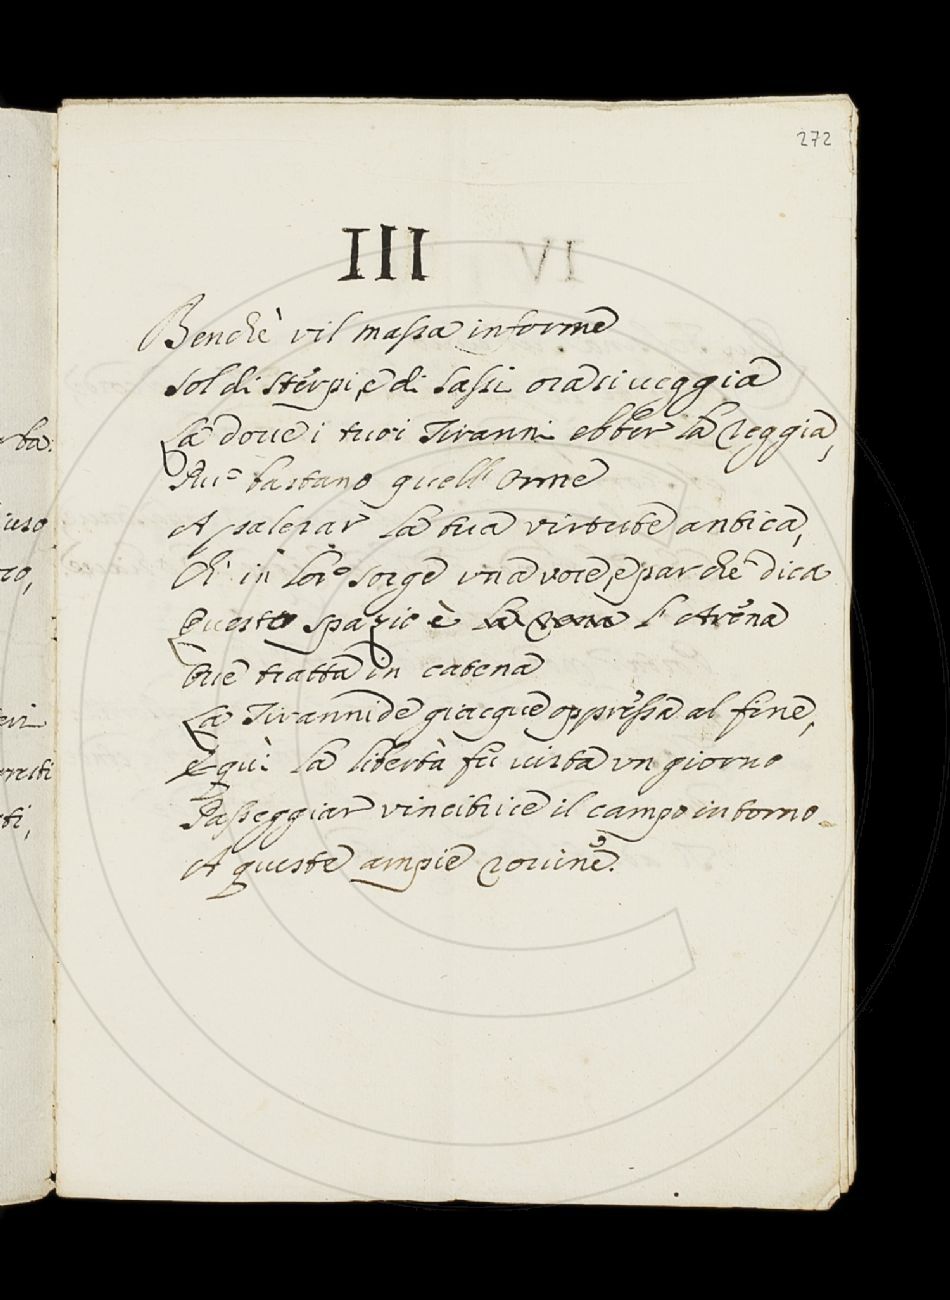 272
III
Benchè vil massa informe
Sol di sterpi, e di sassi ora si veggia
La dove i tuoi Tiranni ebber la reggia,
Pur bastano quell' Orme
A palesar la tua virtute antica,
Ch' in lor sorge una voce, e par che dica
Questo spazio è l' Arena
Ove tratta in catena
La Tirannide giacque oppressa al fine,
E quì la libertà fù vista un giorno
Passeggiar vincitrice il campo intorno
A queste ampie rovine.